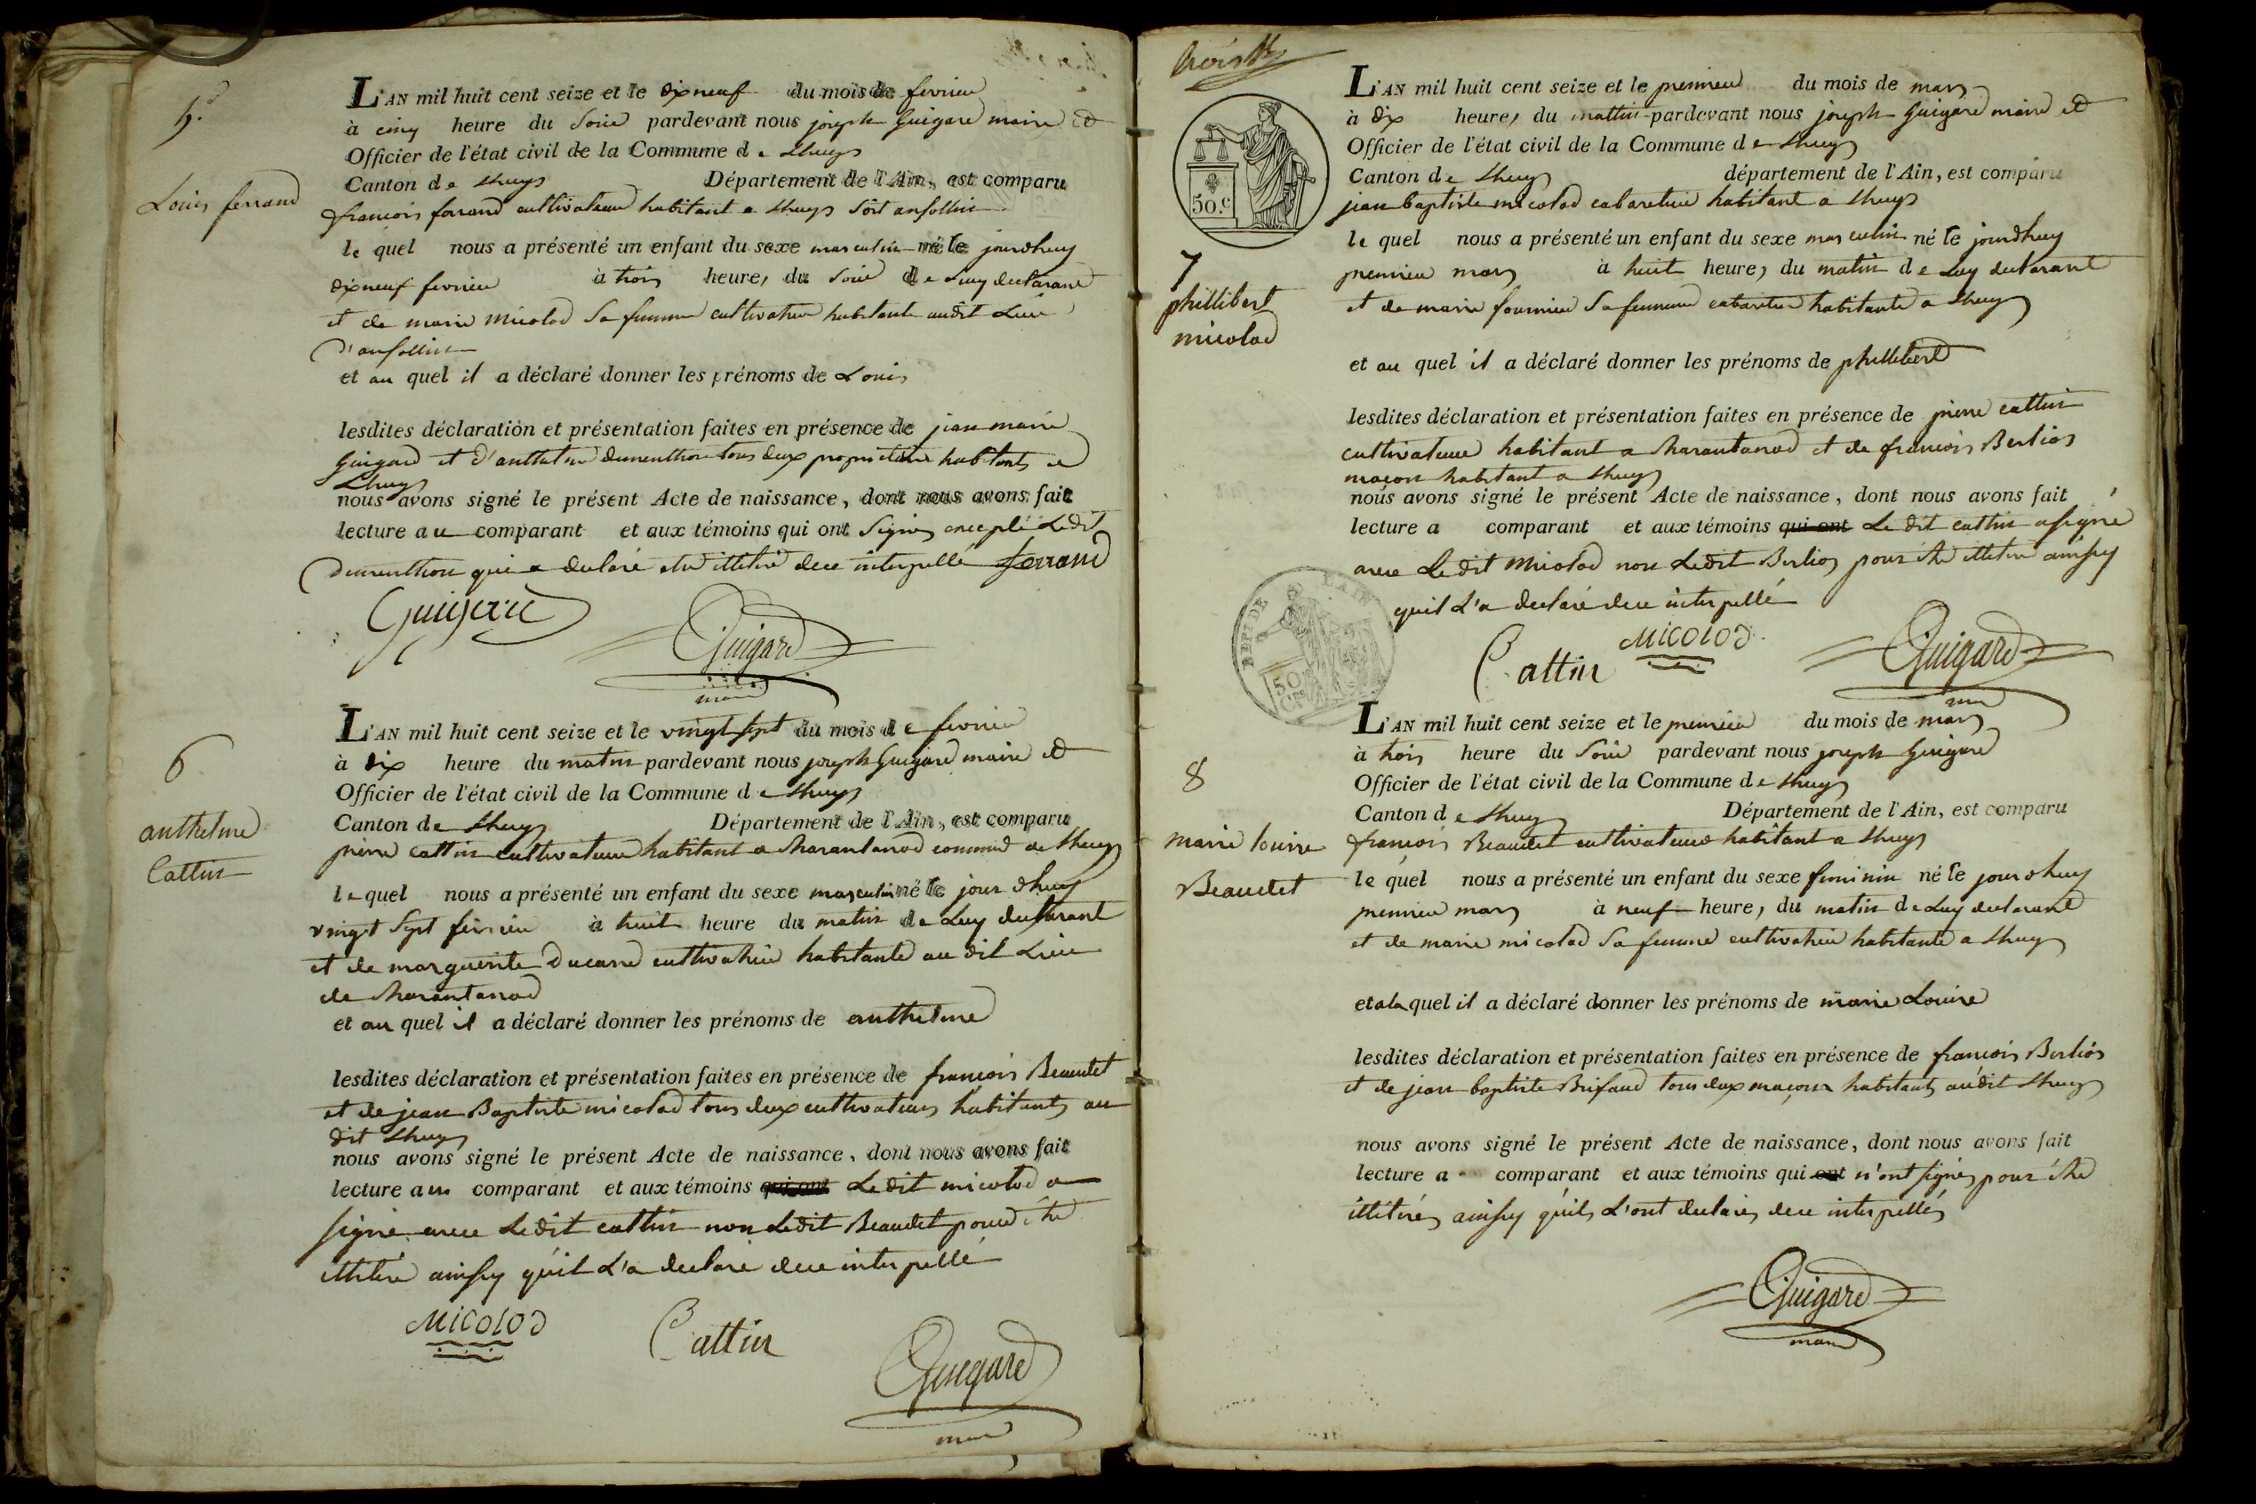 5.
Louis ferrand
L'AN mil huit cent seize et le dix neuf du mois de fevrier
à cinq heure du Soir pardevant nous joseph Guigard maire et
Officier de l'état civil de la Commune de Lhuys
Canton de Lhuys Département de l'Ain, est comparu
francois ferrand cultivateur habitant a Lhuys dit ansollin
le quel nous a présenté un enfant du sexe masculin né le jourdhuy
dix neuf fevrier à trois heure, du Soir de Luy declarant
et de marie micolod Sa femme cultivatrice habitante audit Lieu
d'ansollin
et au quel il a déclaré donner les prénoms de Louis
lesdites déclaration et présentation faites en présence de jean marie
Guigard et d'anthelme dumenthon tous deux proprietaire habitants a
Lhuys
nous avons signé le présent Acte de naissance, dont nous avons fait
lecture au comparant et aux témoins qui ont Signés excepté Ledit
dumenthon qui a declaré etre illitiré dece interpellé ferrand
Guigard
Guigard
maire
6
anthelme
Cattin
L'AN mil huit cent seize et le vingt sept du mois de fevrier
à dix heure du matin pardevant nous joseph Guigard maire et
Officier de l'état civil de la Commune de Lhuys
Canton de Lhuys Département de l'Ain, est comparu
pierre cattin cultivateur habitant a Charantanod commune de Lhuys
le quel nous a présenté un enfant du sexe masculin né le jour dhuy
vingt Sept fevrier à huit heure du matin de Luy declarant
et de marguerite Ducarre cultivatrice habitante au dit Lieu
de Charantanod
et au quel il a déclaré donner les prénoms de anthelme
lesdites déclaration et présentation faites en présence de francois Beaudet
et de jean Baptiste micolod tous deux cultivateurs habitants au
dit Lhuys
nous avons signé le présent Acte de naissance, dont nous avons fait
lecture au comparant et aux témoins qui ont Ledit micolod a
signé avec Ledit cattin non Ledit Beaudet pour étre
illitiré ainsy qu'il L'a declaré dece interpellé
MICOLOD
Cattin
Guigard
maire
trois
50.c
7
phillibert
micolod
L'AN mil huit cent seize et le premier du mois de mars
à dix heure, du mattin pardevant nous joseph Guigard maire et
Officier de l'état civil de la Commune de Lhuys
Canton de Lhuys département de l'Ain, est comparu
jean baptiste micolod cabaretier habitant a Lhuys
le quel nous a présenté un enfant du sexe masculin né le jourdhuy
premier mars à huit heure, du matin de Luy declarant
et de marie fournier Sa femme cabaretier habitante a Lhuys
et au quel il a déclaré donner les prénoms de phillibert
lesdites déclaration et présentation faites en présence de pierre cattin
cultivateur habitant a Charantanod et de francois Berlios
maçon habitant a Lhuys
nous avons signé le présent Acte de naissance, dont nous avons fait
lecture a comparant et aux témoins qui ont Le dit cattin a signé
avec Ledit Micolod non Ledit Berlios pour étre illitiré ainsy
quil L'a declaré dece interpellé
DEPT DE L'AIN
50
CES
Cattin
MICOLOD
Guigard
maire
8
marie louise
Beaudet
L'AN mil huit cent seize et le premier du mois de mars
à trois heure du Soir pardevant nous joseph Guigard
Officier de l'état civil de la Commune de Lhuys
Canton de Lhuys Département de l'Ain, est comparu
francois Beaudet cultivateur habitant a Lhuys
le quel nous a présenté un enfant du sexe feminin né le jour dhuy
premier mars à neuf heure, du matin de Luy declarant
et de marie micolod Sa femme cultivatrice habitante a Lhuys
et a la quel il a déclaré donner les prénoms de marie Louise
lesdites déclaration et présentation faites en présence de francois Berlios
et de jean baptiste Brifaud tous deux maçons habitants audit Lhuys
nous avons signé le présent Acte de naissance, dont nous avons fait
lecture a comparant et aux témoins qui ont n'ont signés pour étre
illitirés ainsy qu'ils L'ont declarés dece interpellés
Guigard
maire